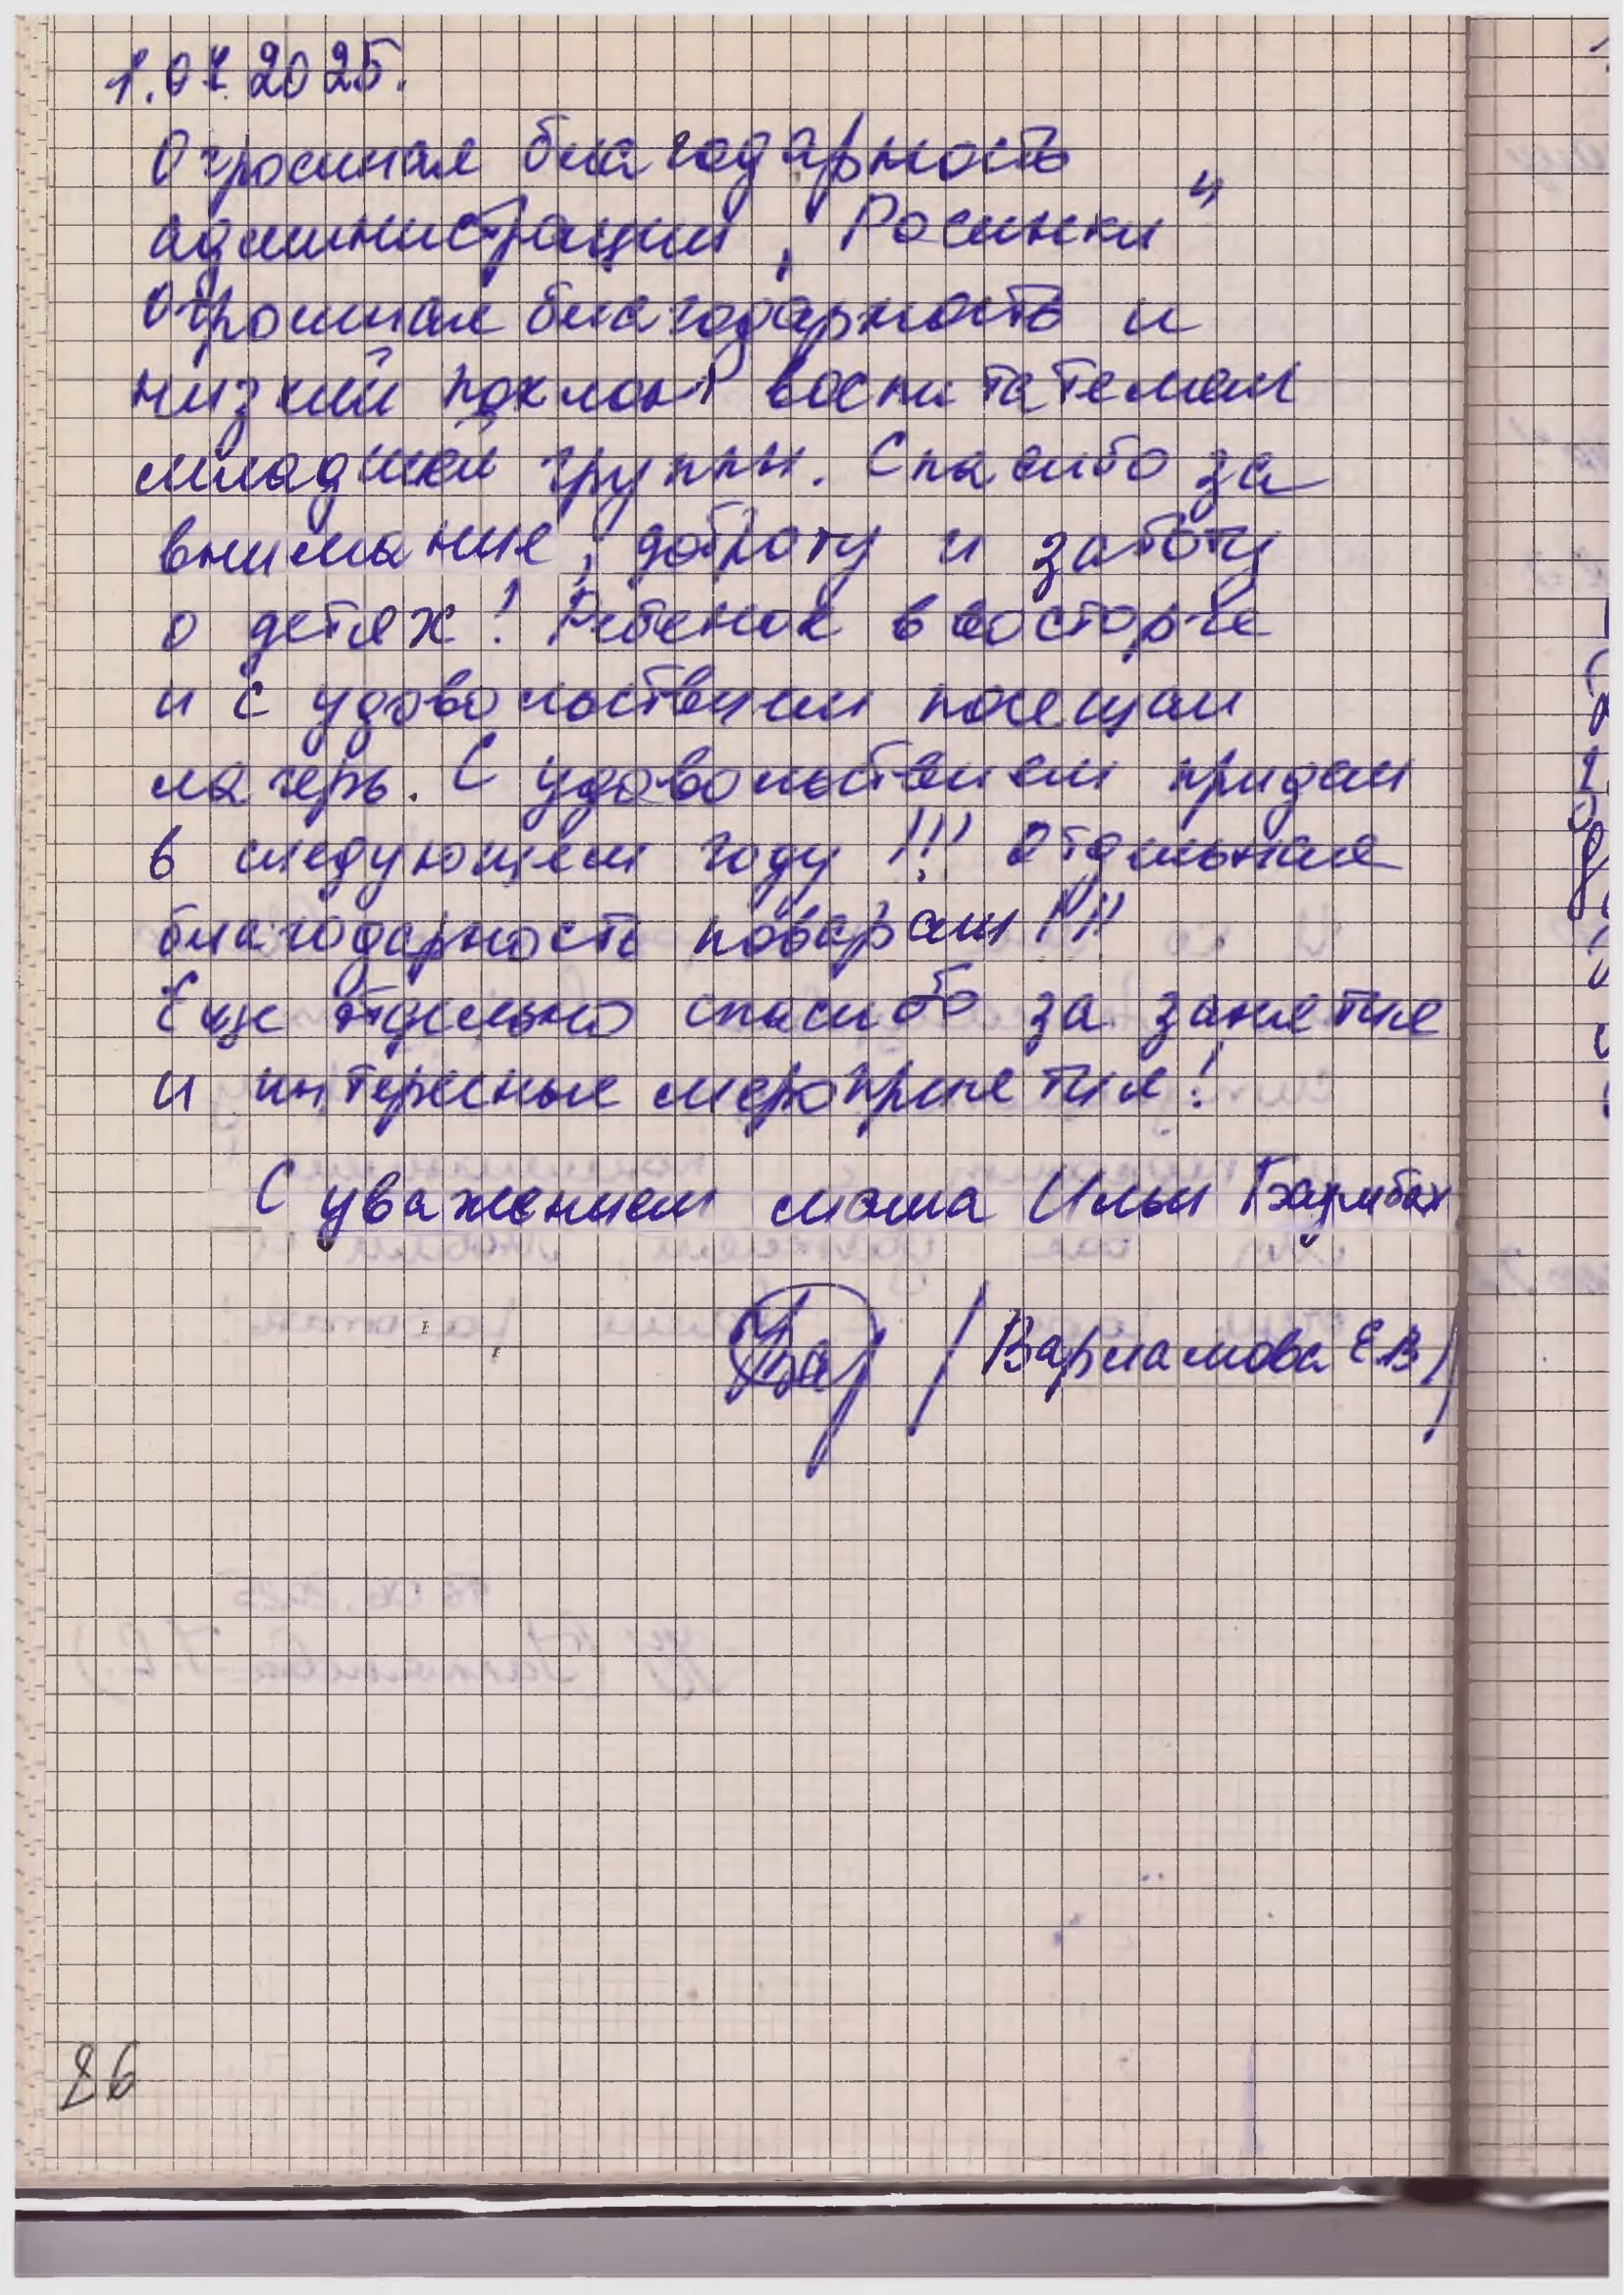 1.07.2025.
Огромная благодарность
администрации „Росинки"
Огромная благодарность и
низкий поклон воспитателям
младшей группы. Спасибо за
внимание, доброту и заботу
о детях! Ребенок в восторге
и с удовольствием посещал
лагерь. С удовольствием придем
в следующем году!!! Отдельная
благодарность поварам!!!
Еще отдельно спасибо за занятия
и интересные мероприятия!
С уважением мама Ильи
/Варламова Е.В/
26